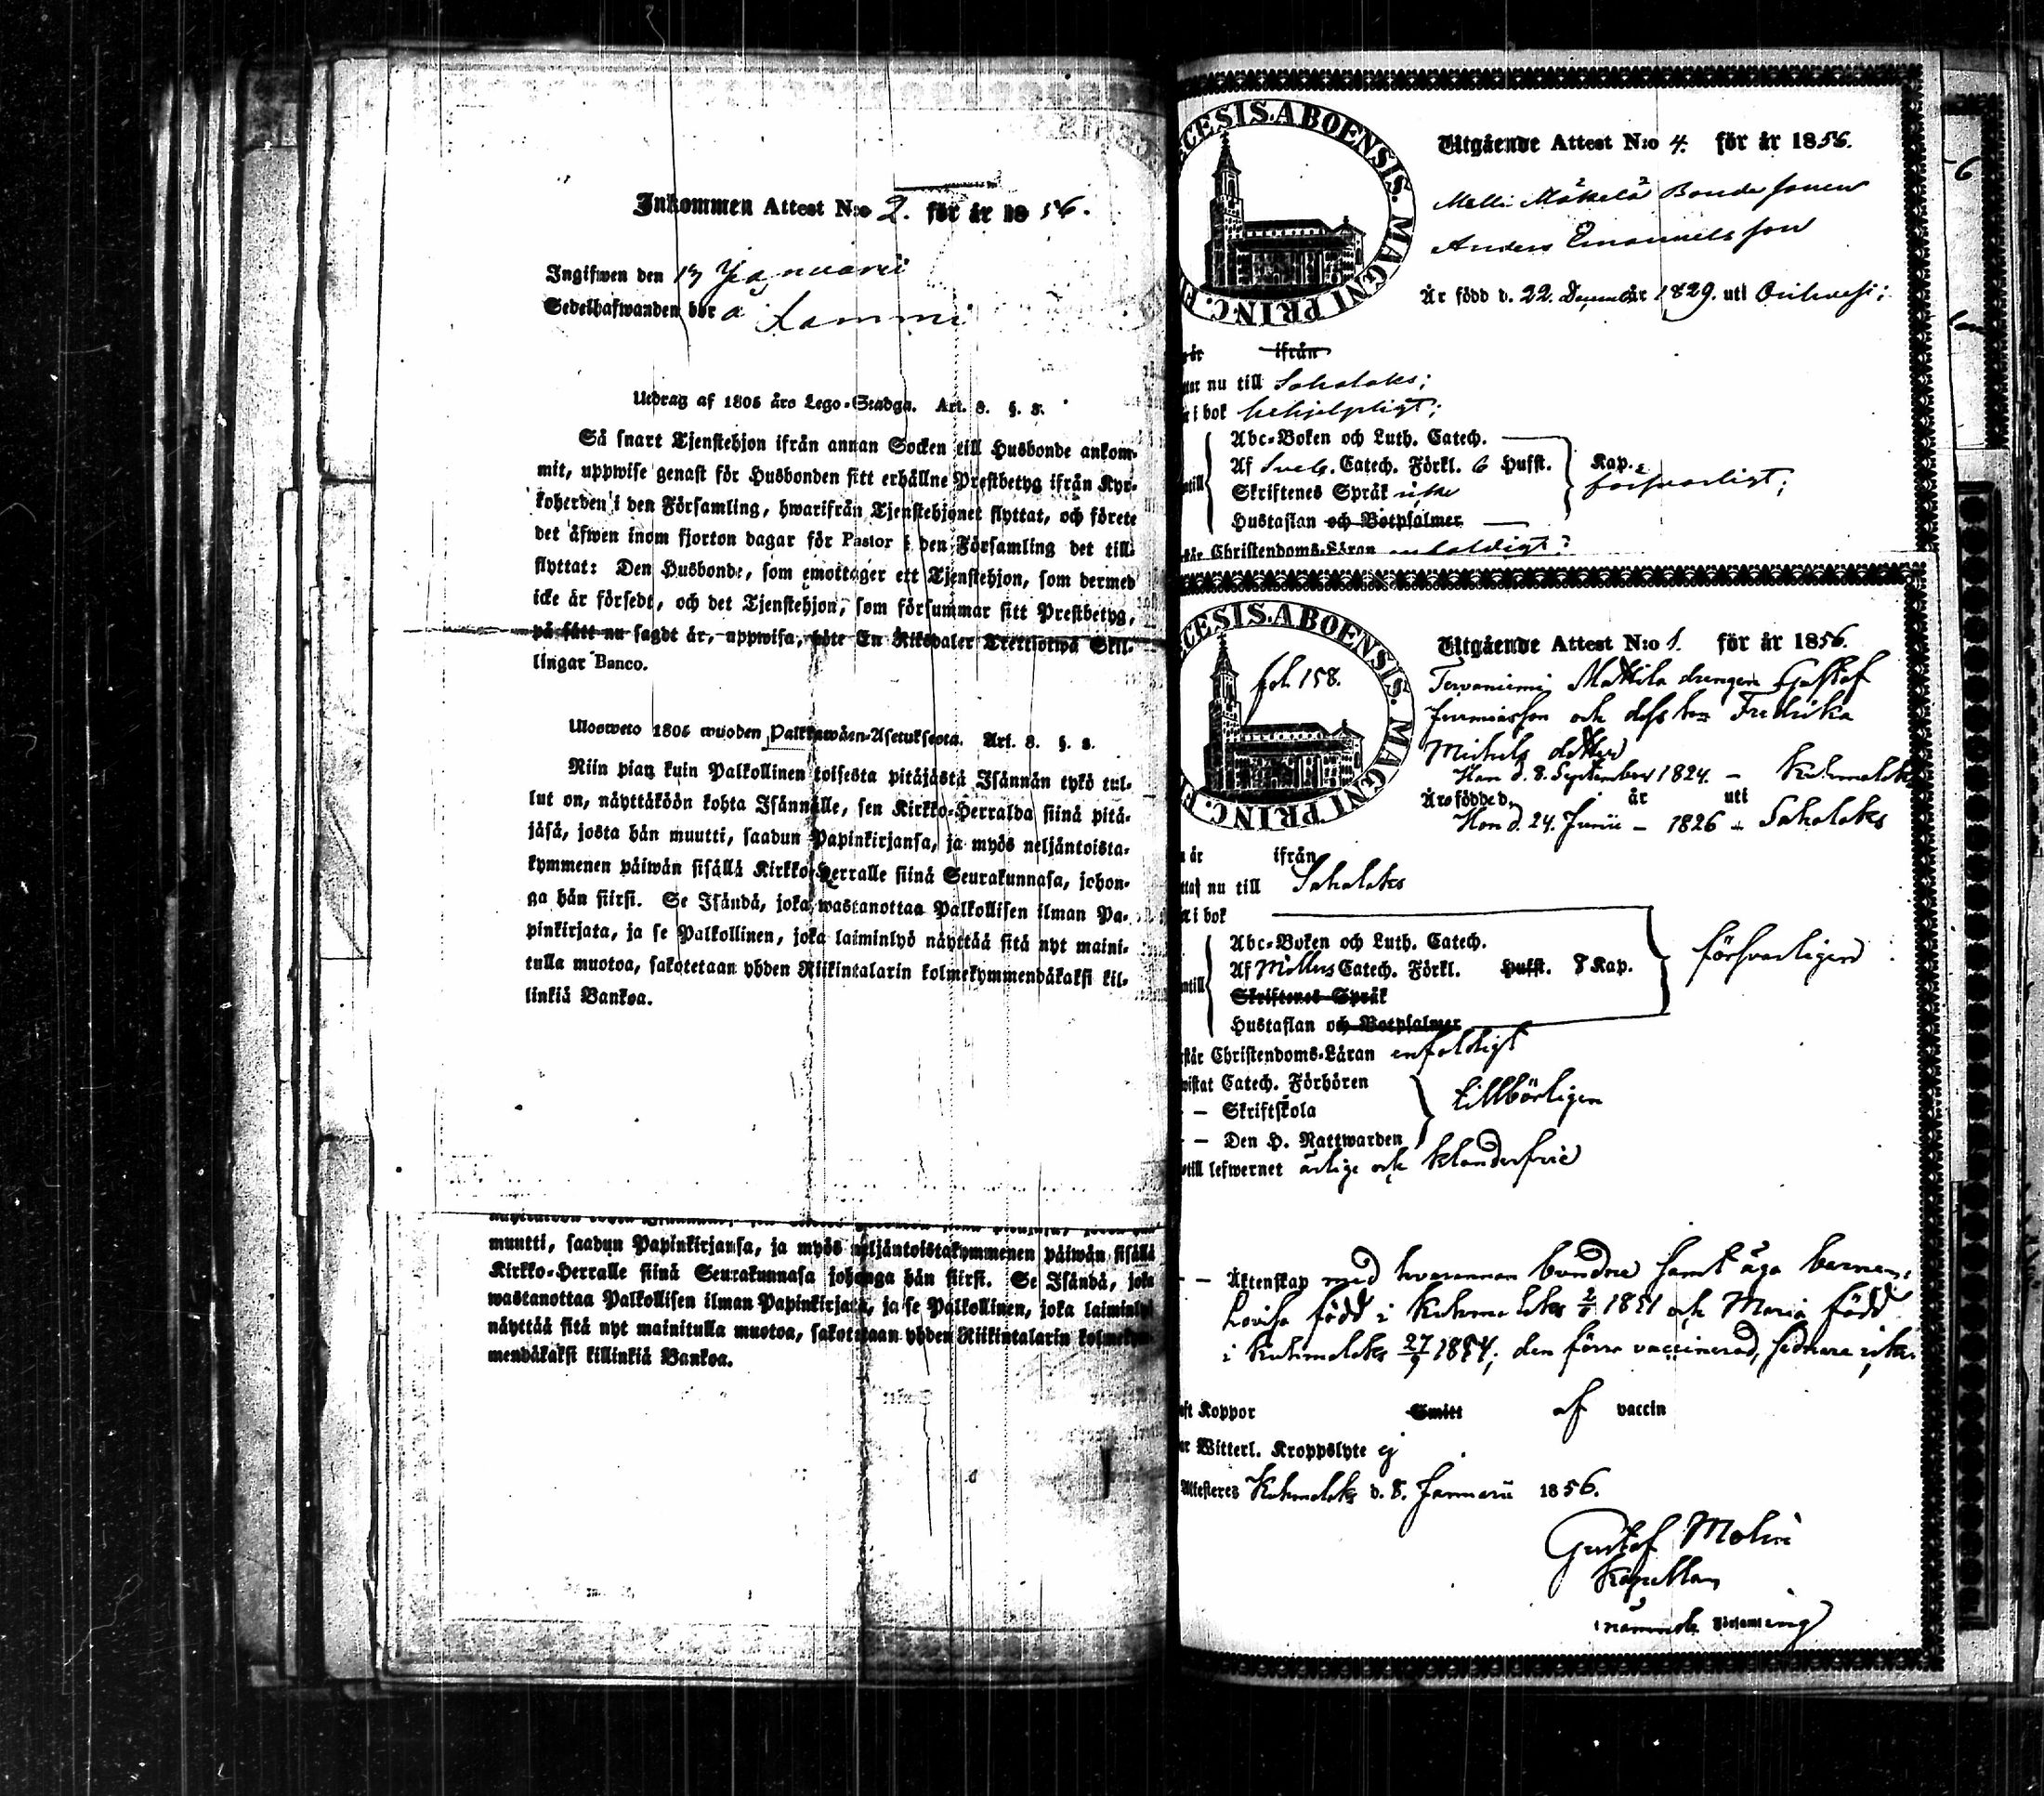 Inkommen Attest N:o 2. för år 1856.
Ingifwen den 17 Januarii
Sedelhafwanden bor å Lammi
Utdrag af 1805 års Lego-Stadga. Art. 8. §. 8.
Så snart Tjenstehjon ifrån annan Socken till Husbonde ankom-
mit, uppwise genast för Husbonden sitt erhållne Prestbetyg ifrån Kyr-
koherden i den Församling, hwarifrån Tjenstehjonet flyttat, och förete
det äfwen inom fjorton dagar för Pastor i den Församling det till-
flyttat: Den Husbonde, som emottager ett Tjenstehjon, som dermed
icke är försedt, och det Tjenstehjon, som försummar sitt Prestbetyg,
på sätt nu sagdt är, uppwisa, böte En Riksdaler Trettiotwå Skil-
lingar Banco.
Ulosweto 1805 wuoden Palkkawäen-Asetuksesta. Art. 8. §. 8.
Niin pian kuin Palkollinen toisesta pitäjästä Isännän tykö tul-
lut on, näyttäköön kohta Isännälle, sen Kirkko-Herralda siinä pitä-
jäsä, josta hän muutti, saadun Papinkirjansa, ja myös neljäntoista-
kymmenen päiwän sisällä Kirkko-Herralle siinä Seurakunnasa, johon-
ga hän siirsi. Se Isändä, joka wastanottaa Palkollisen ilman Pa-
pinkirjata, ja se Palkollinen, joka laiminlyö näyttää sitä nyt maini-
tulla muotoa, sakotetaan yhden Riikintalarin kolmekymmendäkaksi kil-
linkiä Bankoa.
muutti, saadun Papinkirjansa, ja myös neljäntoistakymmenen päiwän sisällä
Kirkko-Herralle siinä Seurakunnasa johonga hän siirsi. Se Isändä, joka
wastanottaa Palkollisen ilman Papinkirjata, ja se Palkollinen, joka laiminlyö
näyttää sitä nyt mainitulla muotoa, sakotetaan yhden Riikintalarin kolmekym-
mendäkaksi killinkiä Bankoa.
CESIS. ABOENSIS. MAGNI PRINC. F
Utgående Attest N:o 4. för år 1856.
Melli Mäkelä Bondesonen
Anders Emanuelsson
Är född d. 22. December 1829. uti Orihvesi;
är ifrån
nu till Sahalaks;
i bok behjelpligt;
Abc-Boken och Luth. Catech.
Af Sveb. Catech. Förkl. 6 Hufst. Kap.
försvarligt;
Skriftenes Språk icke
Hustaflan och Botpsalmer
Christendoms-Läran enfaldigt;
CESIS. ABOENSIS. MAGNI PRINC. F
fol. 158.
Utgående Attest N:o 1. för år 1856.
Tervaniemi Mattila drengen Gustaf
och dess hu Fredrika
Michels dotter
Han d. 8. September 1824. – Kuhmalaks
Äro födde d. år uti
Hon d. 24. Junii – 1826 – Sahalaks
är ifrån
nu till Sahalaks
i bok
Abc-Boken och Luth. Catech.
Af Möllers Catech. Förkl. Hufst. 8 Kap.
försvarligen
Skriftenes Språk
Hustaflan och Botpsalmer
Christendoms-Läran enfaldigt
Catech. Förhören
– Skriftskola
tillbörligen
– Den H. Nattwarden
till lefwernet ärlige och klanderfrie
– Äktenskap med hvarannan bundne samt äga barnen:
Lovisa född i Kuhmalaks 1851 och Maria född
i Kuhmalaks 27/9 1854; den förra vaccinerad, sednare icke.
Koppor Smitt af vaccin
Witterl. Kroppslyte ej
Attesteres Kuhmalaks d. 8. Januarii 1856.
Gustaf Molin
Kapellan
i nämnde Församling